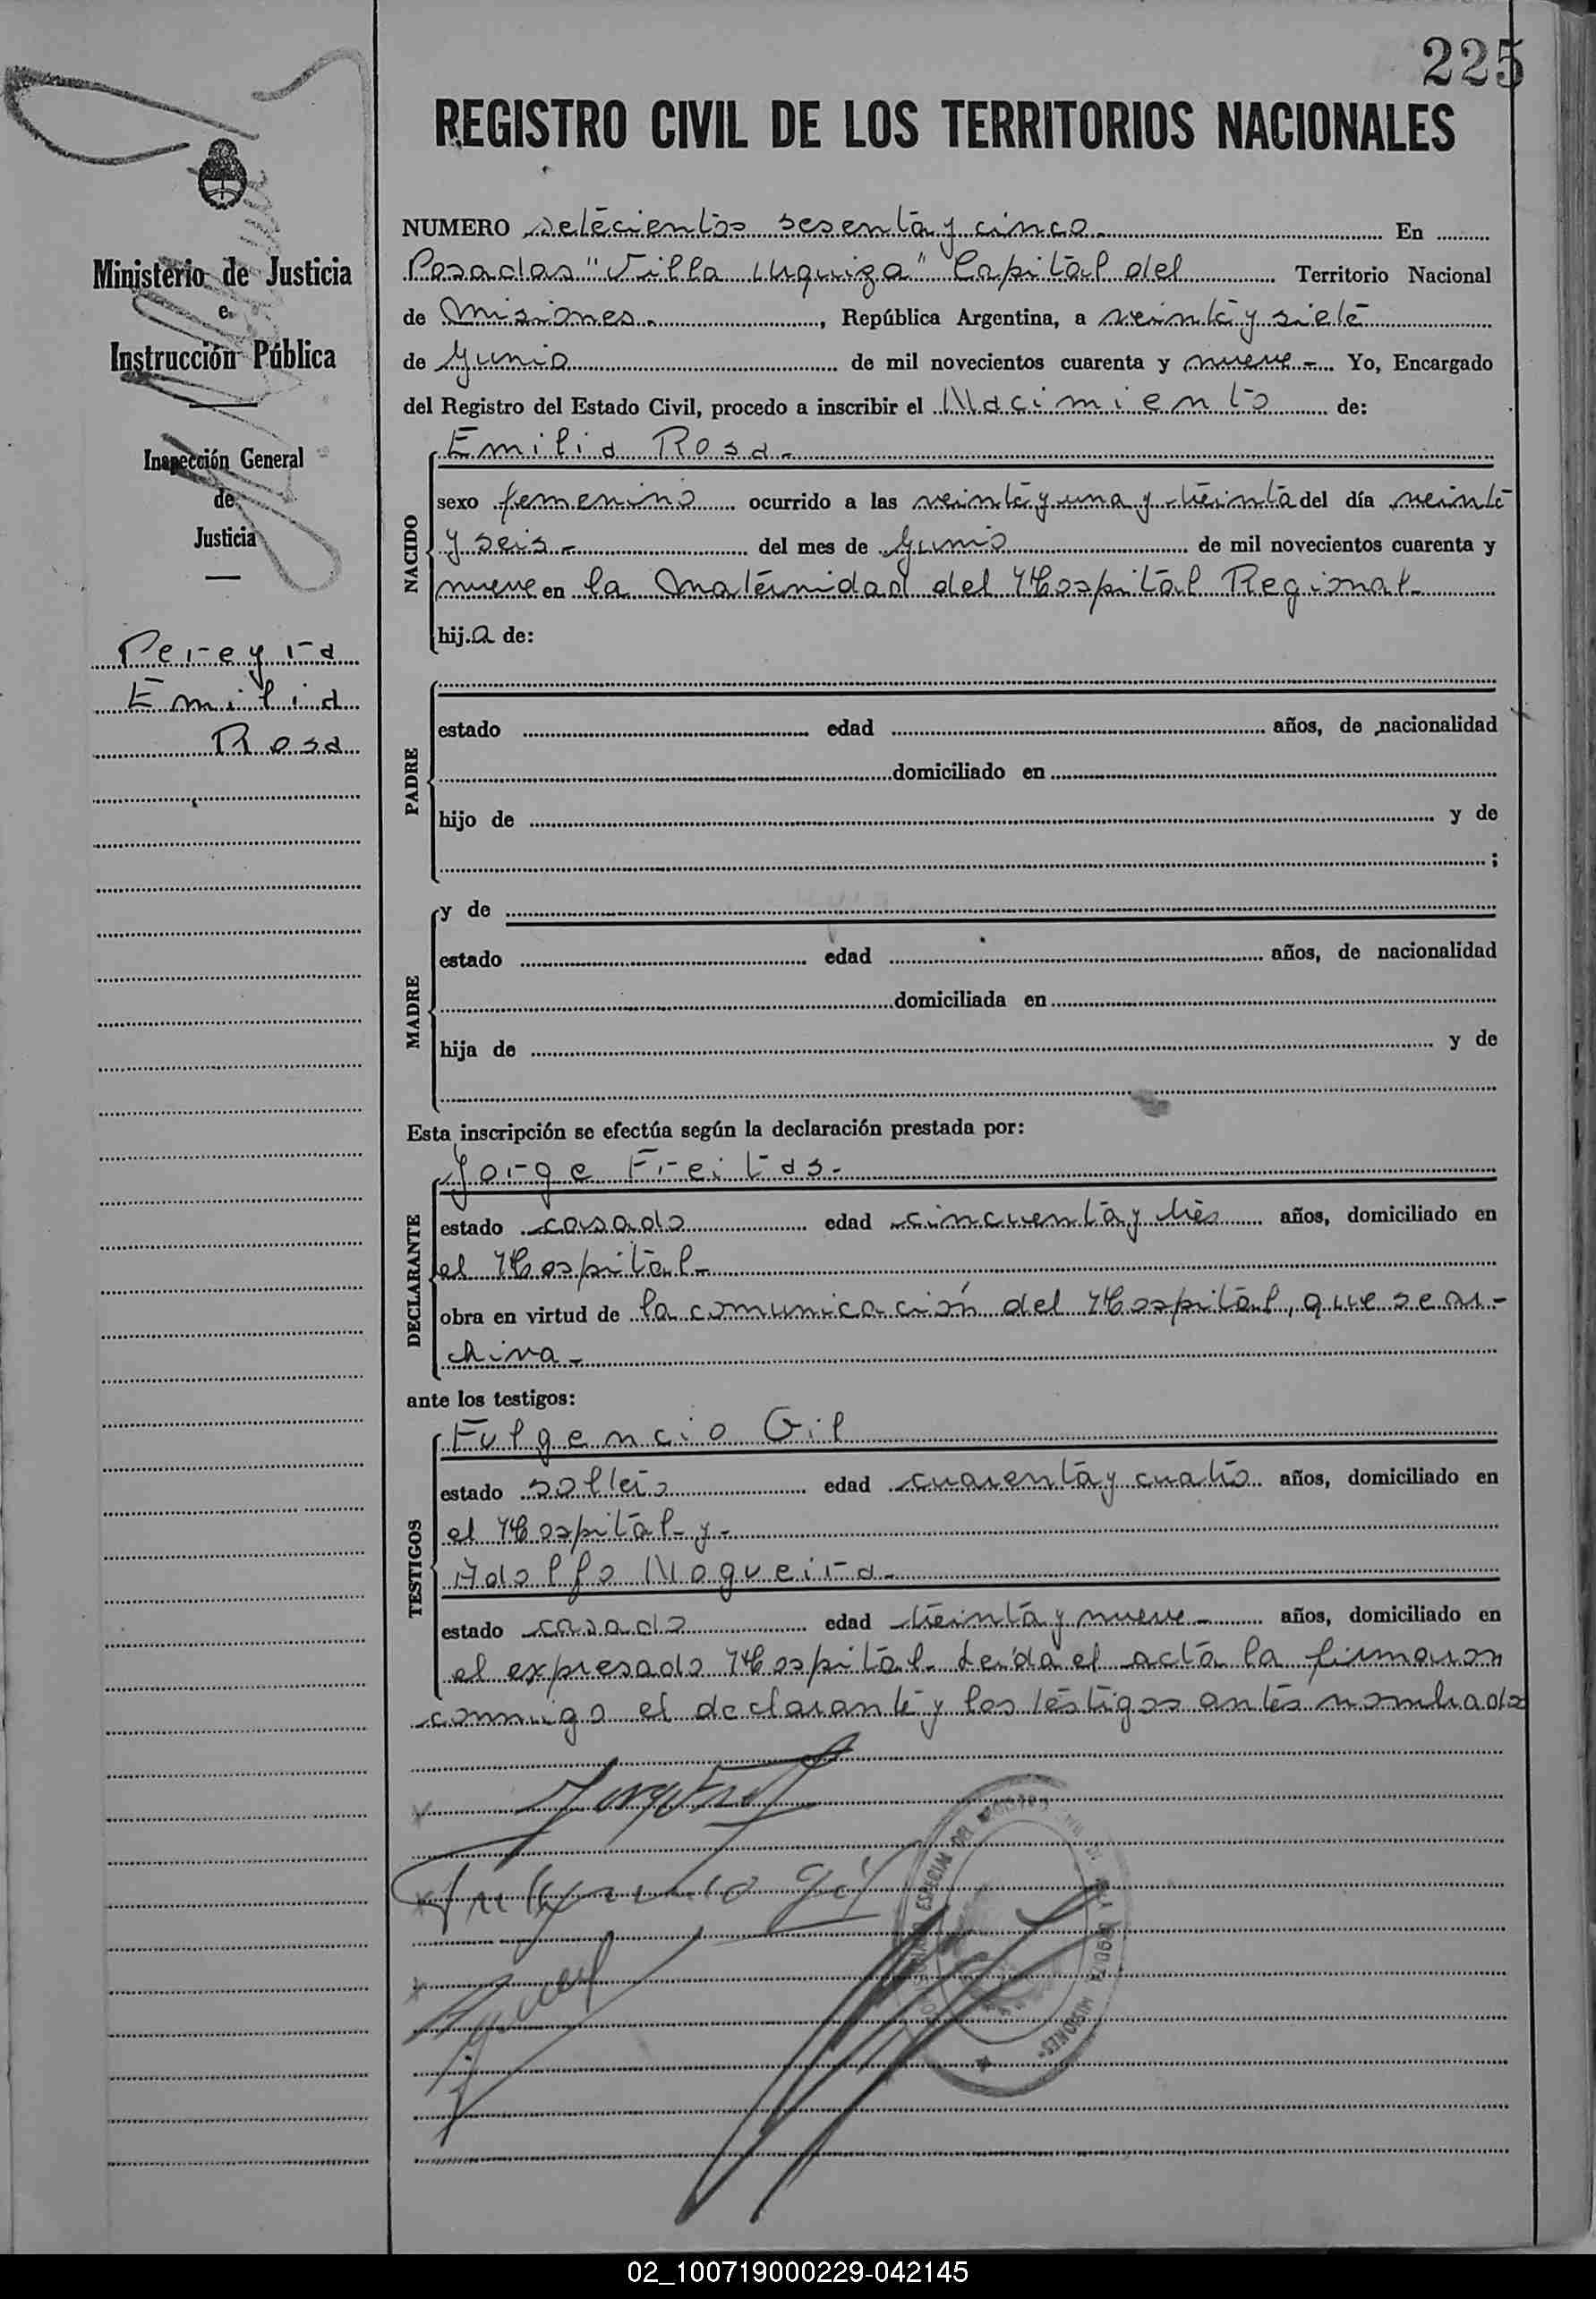 225
REGISTRO CIVIL DE LOS TERRITORIOS NACIONALES
Ministerio de Justicia
e
Instrucción Pública
Inspección General
de
Justicia
Pereyra
Emilia
Rosa
NUMERO setecientos sesenta y cinco.- En
Posadas "Villa Urquiza" Capital del Territorio Nacional
de Misiones.-, República Argentina, a veinte y siete
de Junio de mil novecientos cuarenta y nueve.- Yo, Encargado
del Registro del Estado Civil, procedo a inscribir el Nacimiento de:
Emilia Rosa.-
NACIDO
sexo femenino ocurrido a las veinte y una y treinta del día veinte
y seis.- del mes de Junio de mil novecientos cuarenta y
nueve en la Maternidad del Hospital Regional.-
hija de:
PADRE
estado edad años, de nacionalidad
domiciliado en
hijo de y de
;
MADRE
y de
estado edad años, de nacionalidad
domiciliada en
hija de y de
Esta inscripción se efectúa según la declaración prestada por:
DECLARANTE
Jorge Freitas.-
estado casado edad cincuenta y tres años, domiciliado en
el Hospital.-
obra en virtud de la comunicación del Hospital, que se ar-
chiva.-
ante los testigos:
TESTIGOS
Fulgencio Gil
estado soltero edad cuarenta y cuatro años, domiciliado en
el Hospital- y-
Adolfo Nogueira.-
estado casado edad treinta y nueve- años, domiciliado en
el expresado Hospital. Leída el acta la firmaron
conmigo el declarante y los testigos antes nombrados
Fulgencio Gil
ESPECIAL DEL REGISTRO
MISIONES
02_100719000229-042145